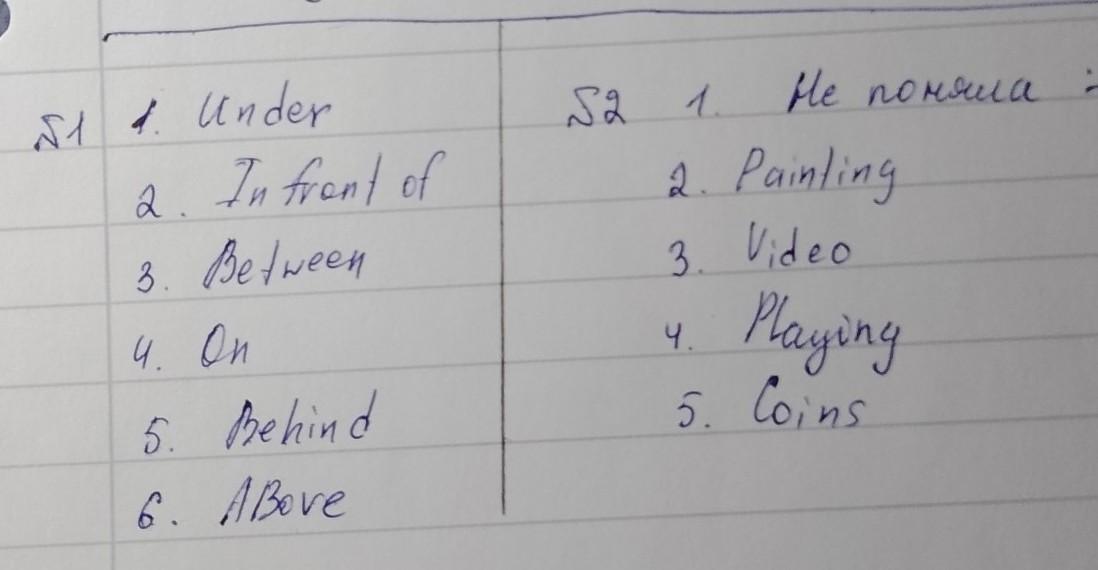 №1 1. Under
2. In front of
3. Between
4. On
5. Behind
6. ABove
№2 1. Не поняла :
2. Painting
3. Video
4. Playing
5. Coins